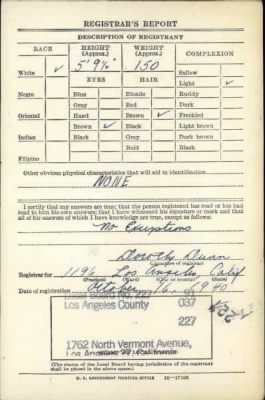 REGISTRAR'S REPORT
DESCRIPTION OF REGISTRANT
RACE HEIGHT (Approx.) WEIGHT (Approx.) COMPLEXION
5' 9½" 150
White ✓ EYES HAIR Sallow
Light ✓
Negro Blue Blonde Ruddy
Gray Red Dark
Oriental Hazel Brown ✓ Freckled
Brown ✓ Black Light brown
Indian Black Gray Dark brown
Bald Black
Filipino
Other obvious physical characteristics that will aid in identification
NONE
I certify that my answers are true; that the person registered has read or has had
read to him his own answers; that I have witnessed his signature or mark and that
all of his answers of which I have knowledge are true, except as follows:
No Exceptions
Dorothy Dunn
(Signature of registrar)
Registrar for 1196 Los Angeles, Calif
Date of registration October 16 1940
Local Board No. 227 91
Los Angeles County 037
227
1762 North Vermont Avenue,
Los Angeles, California
(The stamp of the Local Board having jurisdiction of the registrant
shall be placed in the above space.)
U. S. GOVERNMENT PRINTING OFFICE 16—17105